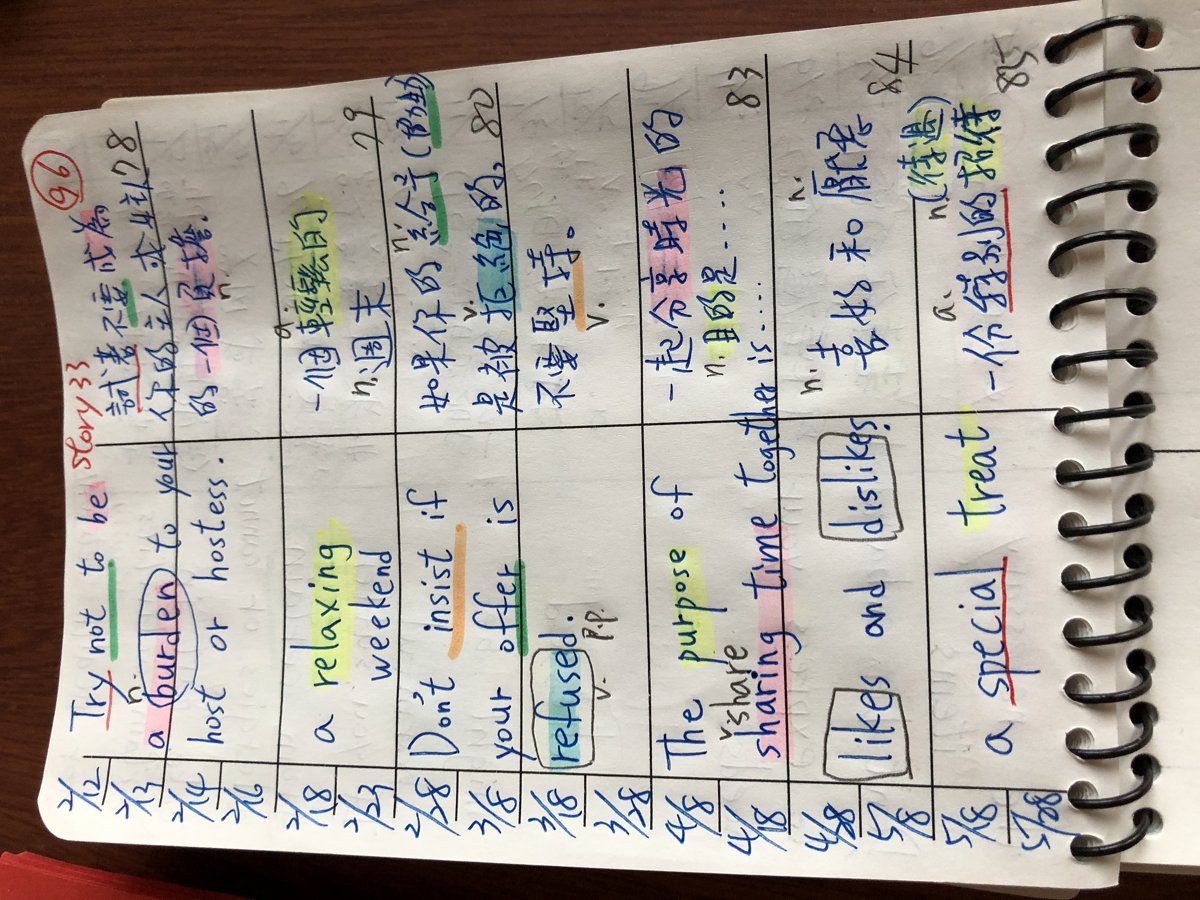 96
story 33
2/12
2/13
2/14
2/16
Try not to be
n.
a burden to your
host or hostess.
試著不要成為
你的主人或女主人
的一個負擔.
n.
78
2/18
2/23
a relaxing
weekend
a.
一個輕鬆的
n. 週末
79
2/28
3/8
3/18
3/28
Don't insist if
your offer is
refused.
v. p.p.
n.
如果你的給予(幫助)
v.
是被拒絕的,
不要堅持。
v.
80
4/8
4/18
The purpose of
v share
sharing time together is....
一起分享時光的
n. 目的是.....
83
4/28
5/8
likes and dislikes
n. n.
喜好和厭惡
84
5/18
5/28
a special treat
a. n. (待遇)
一份特別的招待
85